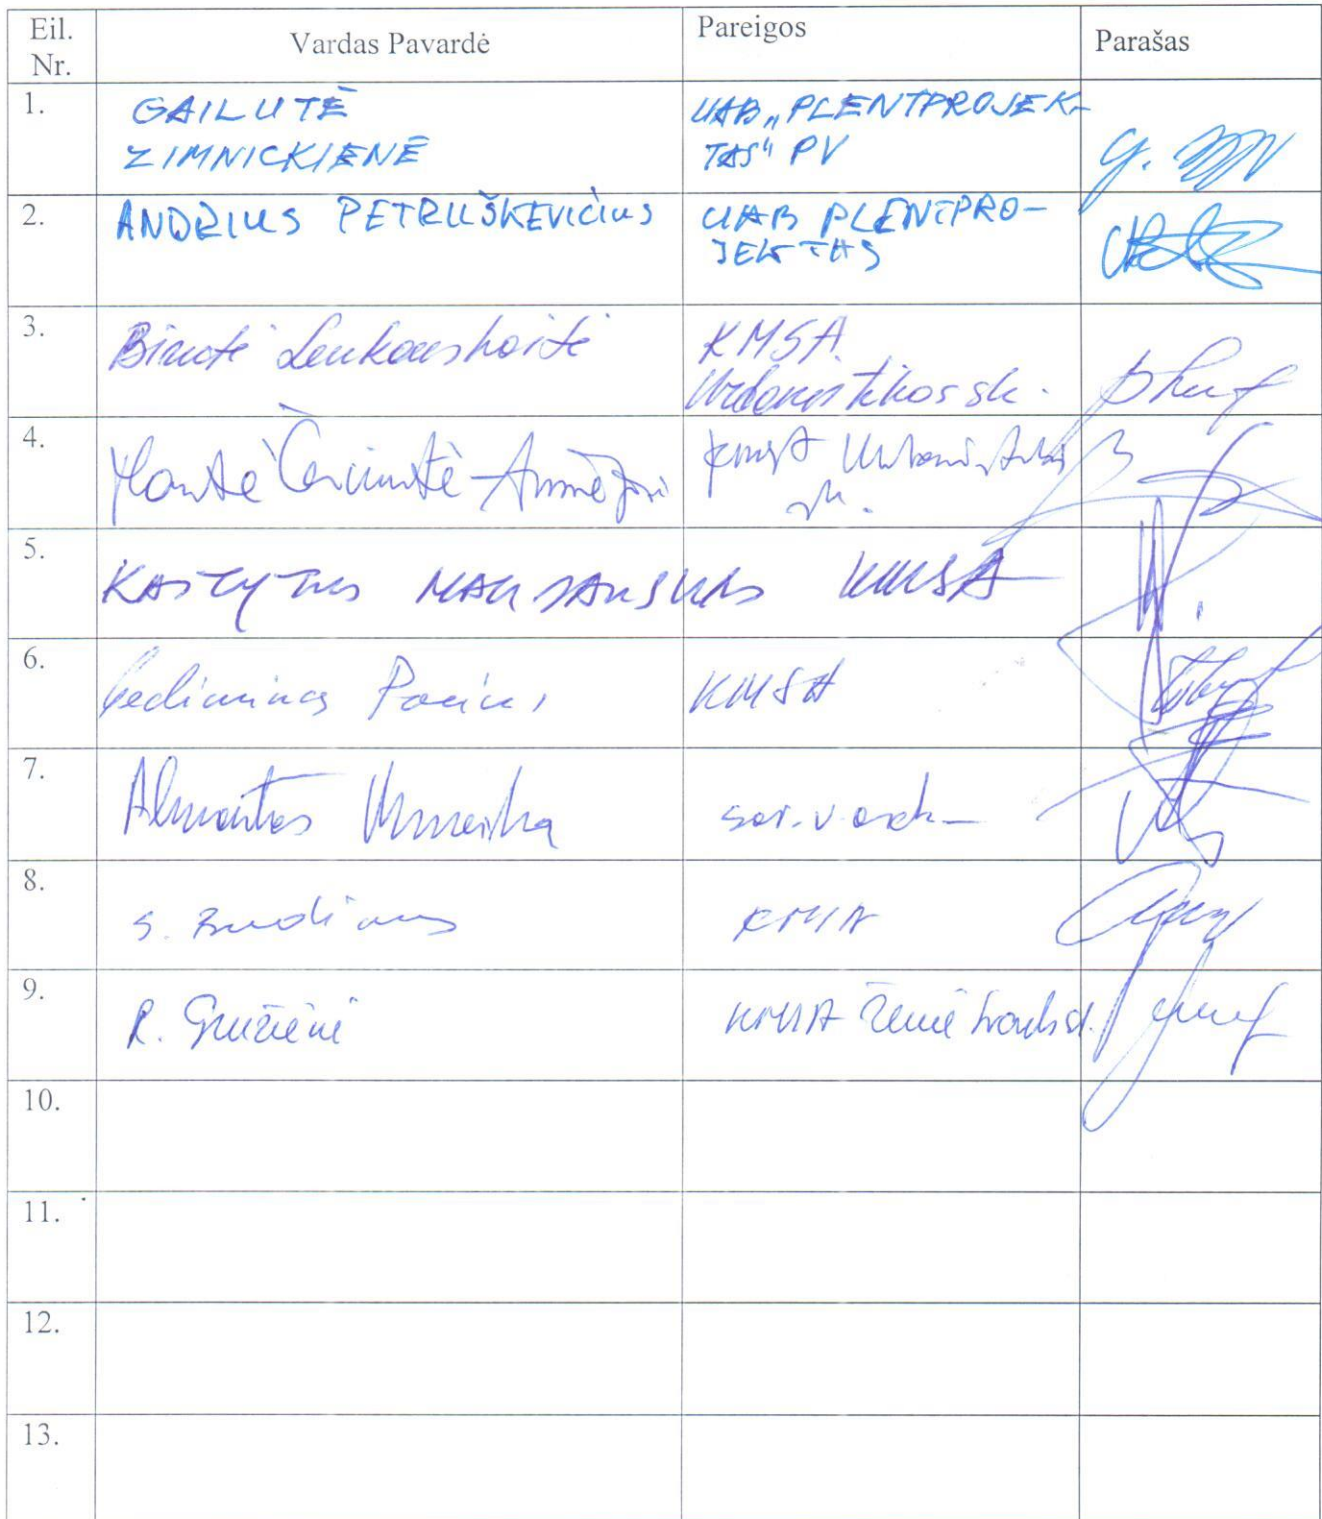 Eil. Nr.
Vardas Pavardė
Pareigos
Parašas
1.
GAILUTĖ
ZIMNICKIENĖ
UAB „PLENTPROJEK-
TAS“ PV
2.
ANDRIUS PETRUŠKEVIČIUS
UAB PLENTPRO-
JEKTAS
3.
Birutė Lenkauskaitė
KMSA
Urbanistikos sk.
4.
Mantė Černiūtė-
KMSA Urbanistikos
sk.
5.
KASTYTIS MACIJAUSKAS KMSA
6.
Gediminas KMSA
7.
Almantas
sav. v. arch.
8.
S. Budinas KMA
9.
R. Gružienė KMSA Žemėtvarkos sk.
10.
11.
12.
13.